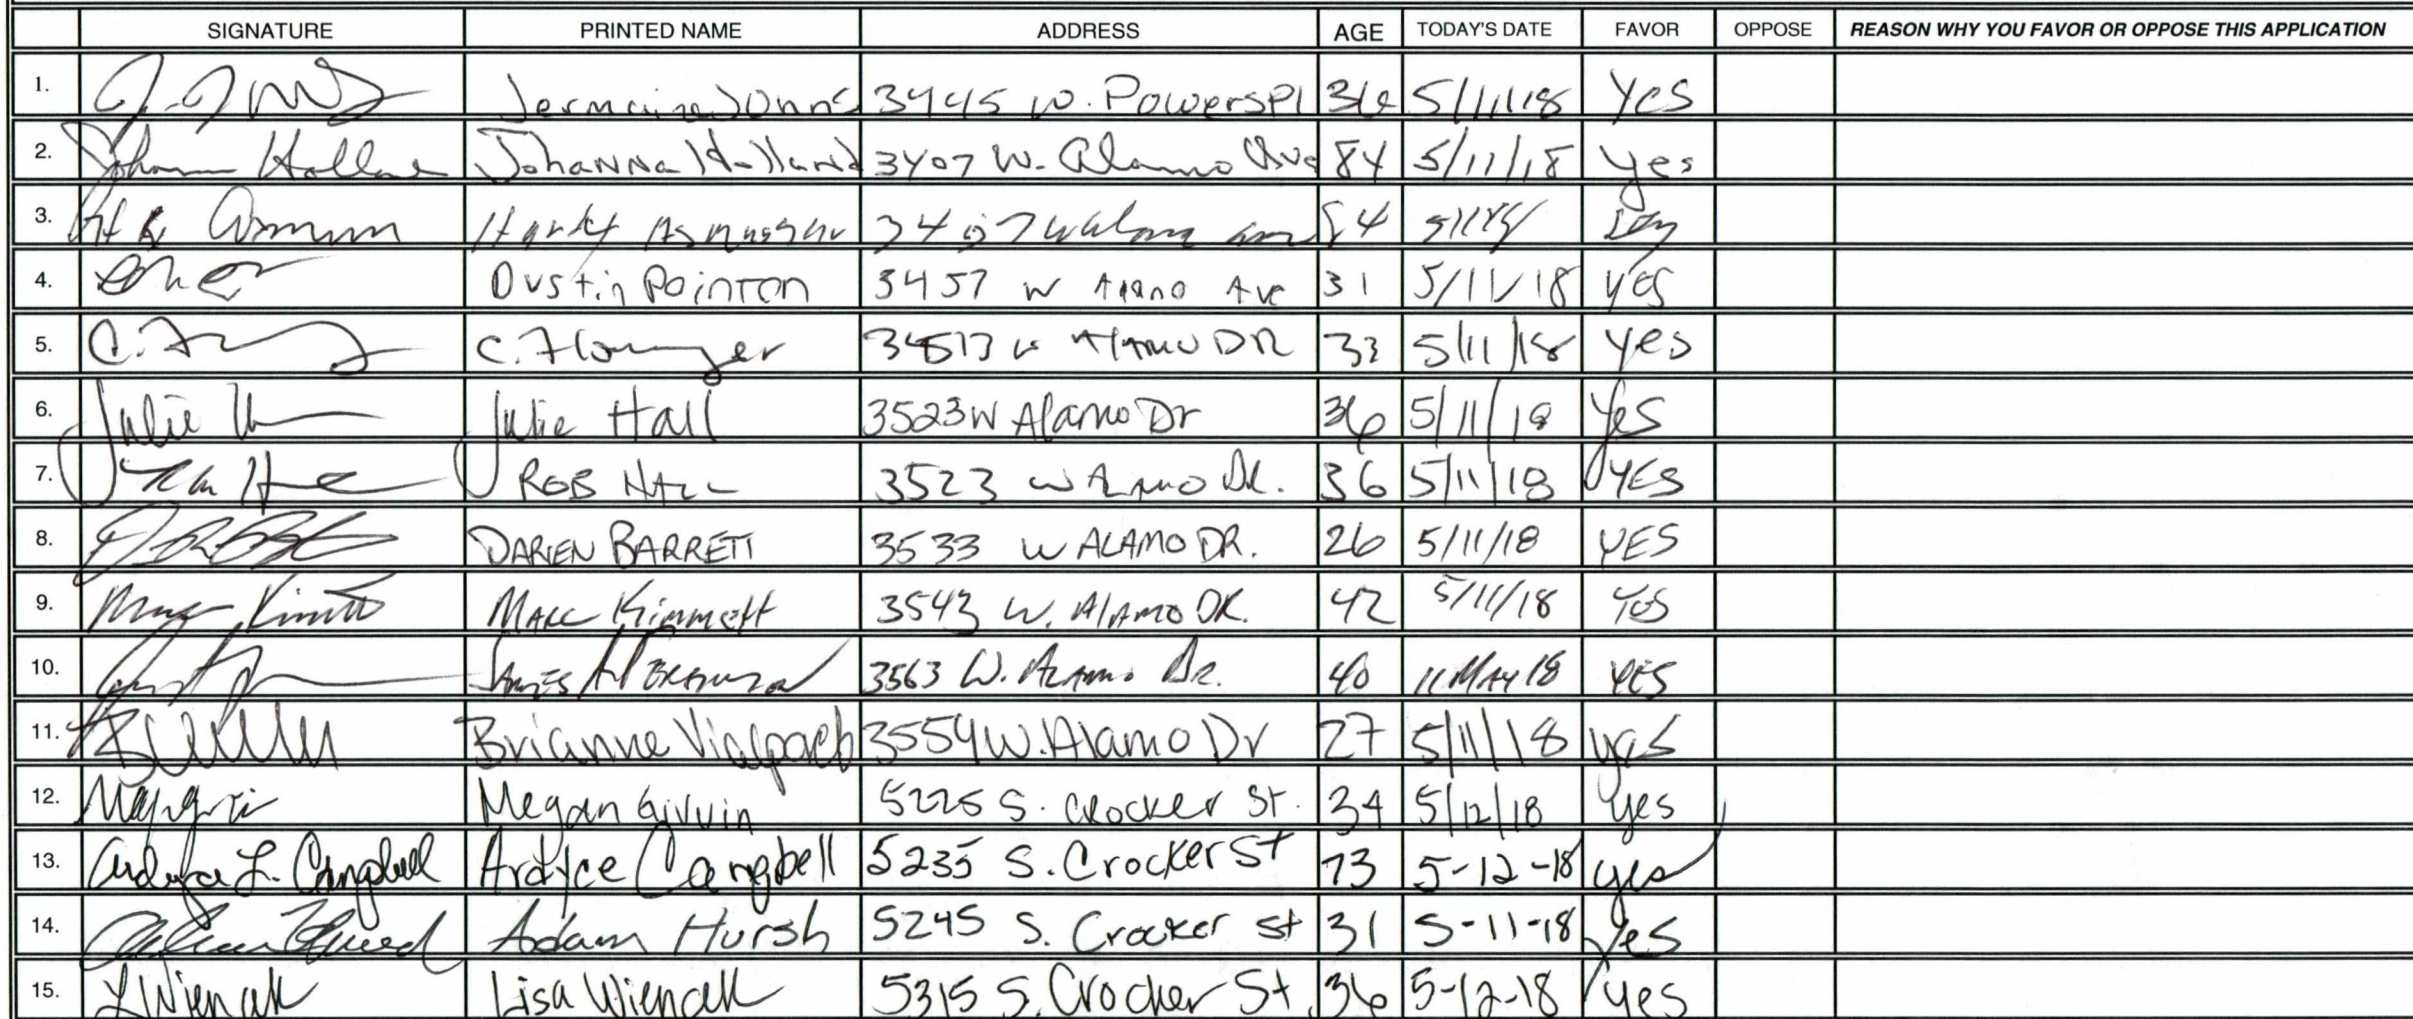 SIGNATURE PRINTED NAME ADDRESS AGE TODAY'S DATE FAVOR OPPOSE REASON WHY YOU FAVOR OR OPPOSE THIS APPLICATION
1. Jermaine 3445 W. Powers Pl 36 5/11/18 Yes
2. Holland Johanna Holland 3407 W. Alamo Ave 84 5/11/18 yes
3. 3407 W Alamo 84
4. Dustin Pointon 3457 W Alamo Ave 31 5/11/18 YES
5. C. 33 W ALAMO DR 33 5/11/18 yes
6. Julie Julie Hall 3523 W Alamo Dr 36 5/11/18 Yes
7. ROB HALL 3523 W ALAMO DR. 36 5/11/18 YES
8. DAREN BARRETT 3533 W ALAMO DR. 26 5/11/18 YES
9. Marc Kimmett MARC Kimmett 3543 W. AlAMO DR. 42 5/11/18 YES
10. JAMES 3563 W. ALAMO DR. 40 11 MAY 18 YES
11. Brianne 3554 W. Alamo Dr 27 5/11/18 yes
12. Megan Girvin 5225 S. Crocker St. 34 5/12/18 yes
13. Ardyce L. Campbell Ardyce Campbell 5235 S. Crocker St 73 5-12-18 yes
14. Adam Hursh 5245 S. Crocker St 31 5-11-18 Yes
15. L Wiencek Lisa Wiencek 5315 S. Crocker St. 36 5-12-18 yes